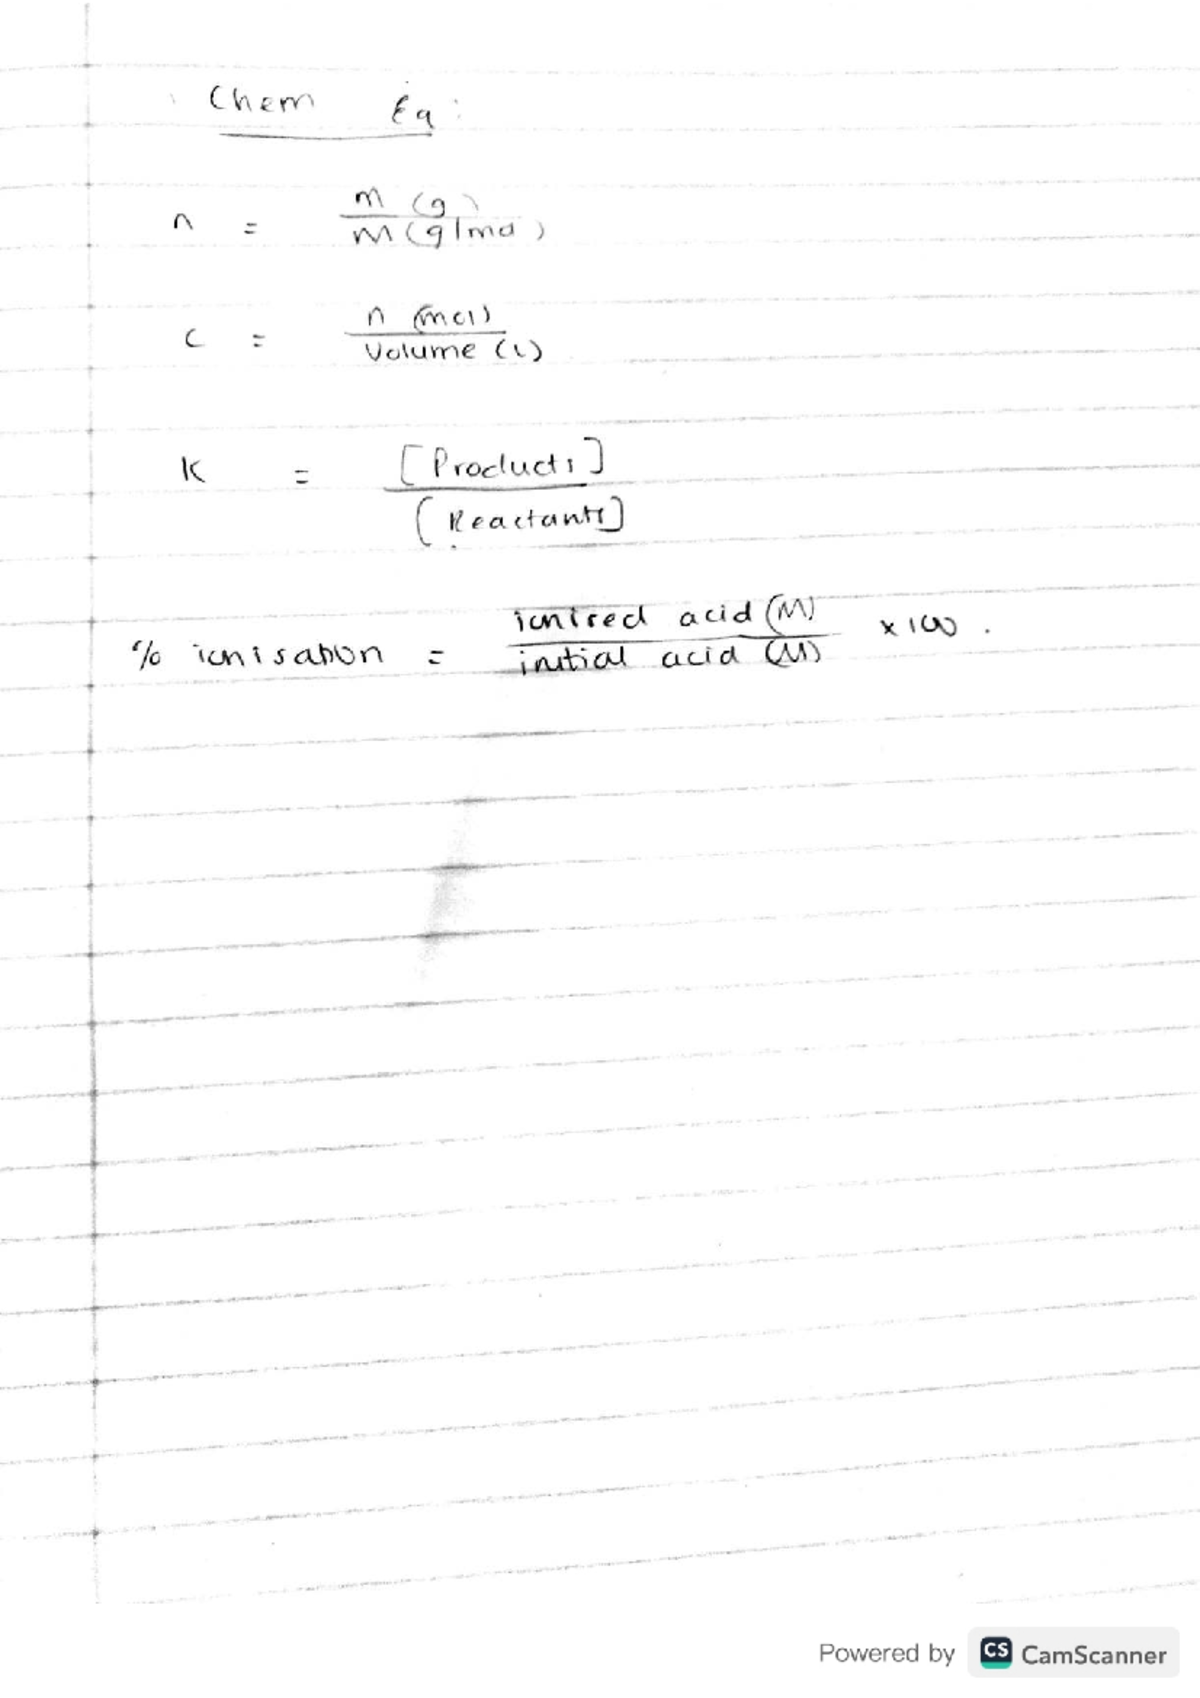 Chem Eq:
n = m (g) / M (g/mol)
c = n (mol) / Volume (L)
K = [Products] / [Reactants]
% ionisation = ionised acid (M) / initial acid (M) × 100.
Powered by CS CamScanner